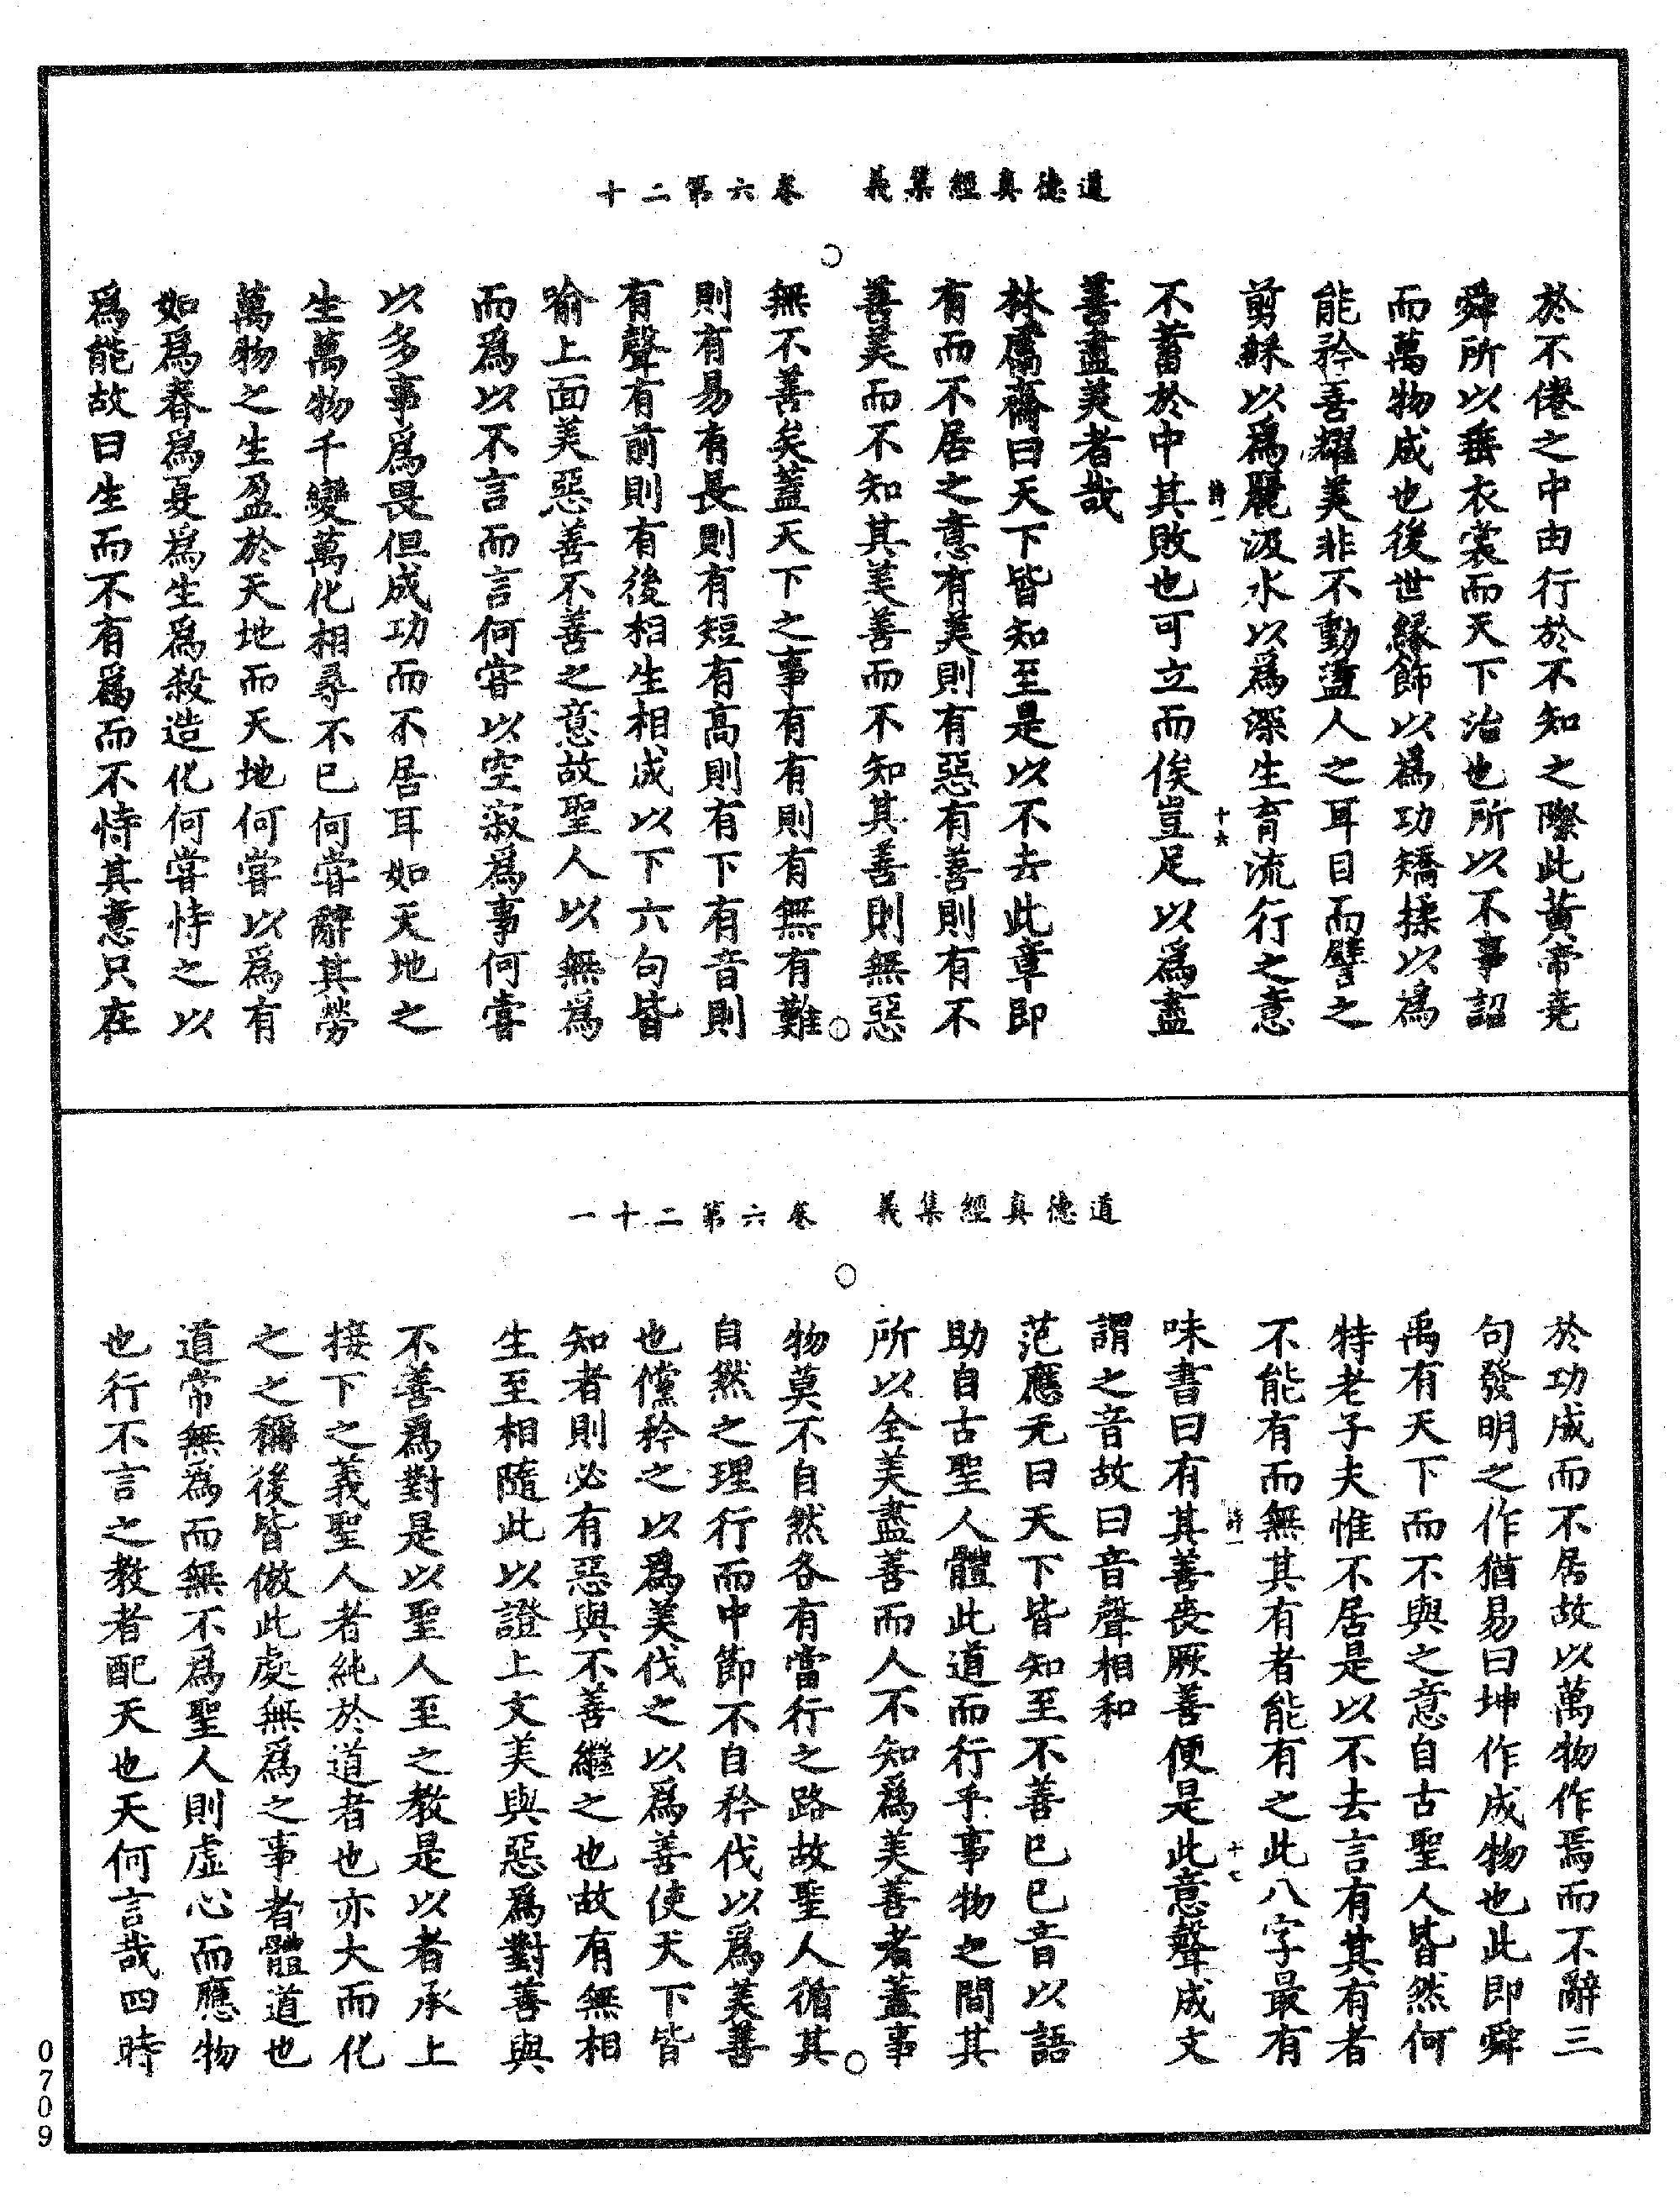 道德真經集義　卷六第二十
於不倦之中由行於不知之際此黃帝堯
舜所以垂衣裳而天下治也所以不事詔
而萬物成也後世緣飾以為功矯揉以為
能矜善耀美非不動盪人之耳目而譬之
剪綵以為麗汲水以為深生育流行之意
詩一　十六
不蓄於中其敗也可立而俟豈足以為盡
善盡美者哉
林鬳齋曰天下皆知至是以不去此章即
有而不居之意有美則有惡有善則有不
善美而不知其美善而不知其善則無惡
無不善矣蓋天下之事有有則有無有難
則有易有長則有短有高則有下有音則
有聲有前則有後相生相成以下六句皆
喻上面美惡善不善之意故聖人以無為
而為以不言而言何嘗以空寂為事何嘗
以多事為畏但成功而不居耳如天地之
生萬物千變萬化相尋不已何嘗辭其勞
萬物之生盈於天地而天地何嘗以為有
如為春為夏為生為殺造化何嘗恃之以
為能故曰生而不有為而不恃其意只在
道德真經集義　卷六第二十一
於功成而不居故以萬物作焉而不辭三
句發明之作猶易曰坤作成物也此即舜
禹有天下而不與之意自古聖人皆然何
特老子夫惟不居是以不去言有其有者
不能有而無其有者能有之此八字最有
詩一　十七
味書曰有其善喪厥善便是此意聲成文
謂之音故曰音聲相和
范應元曰天下皆知至不善已巳音以語
助自古聖人體此道而行乎事物之間其
所以全美盡善而人不知為美善者蓋事
物莫不自然各有當行之路故聖人循其
自然之理行而中節不自矜伐以為美善
也儻矜之以為美伐之以為善使天下皆
知者則必有惡與不善繼之也故有無相
生至相隨此以證上文美與惡為對善與
不善為對是以聖人至之教是以者承上
接下之義聖人者純於道者也亦大而化
之之稱後皆倣此處無為之事者體道也
道常無為而無不為聖人則虛心而應物
也行不言之教者配天也天何言哉四時
0709